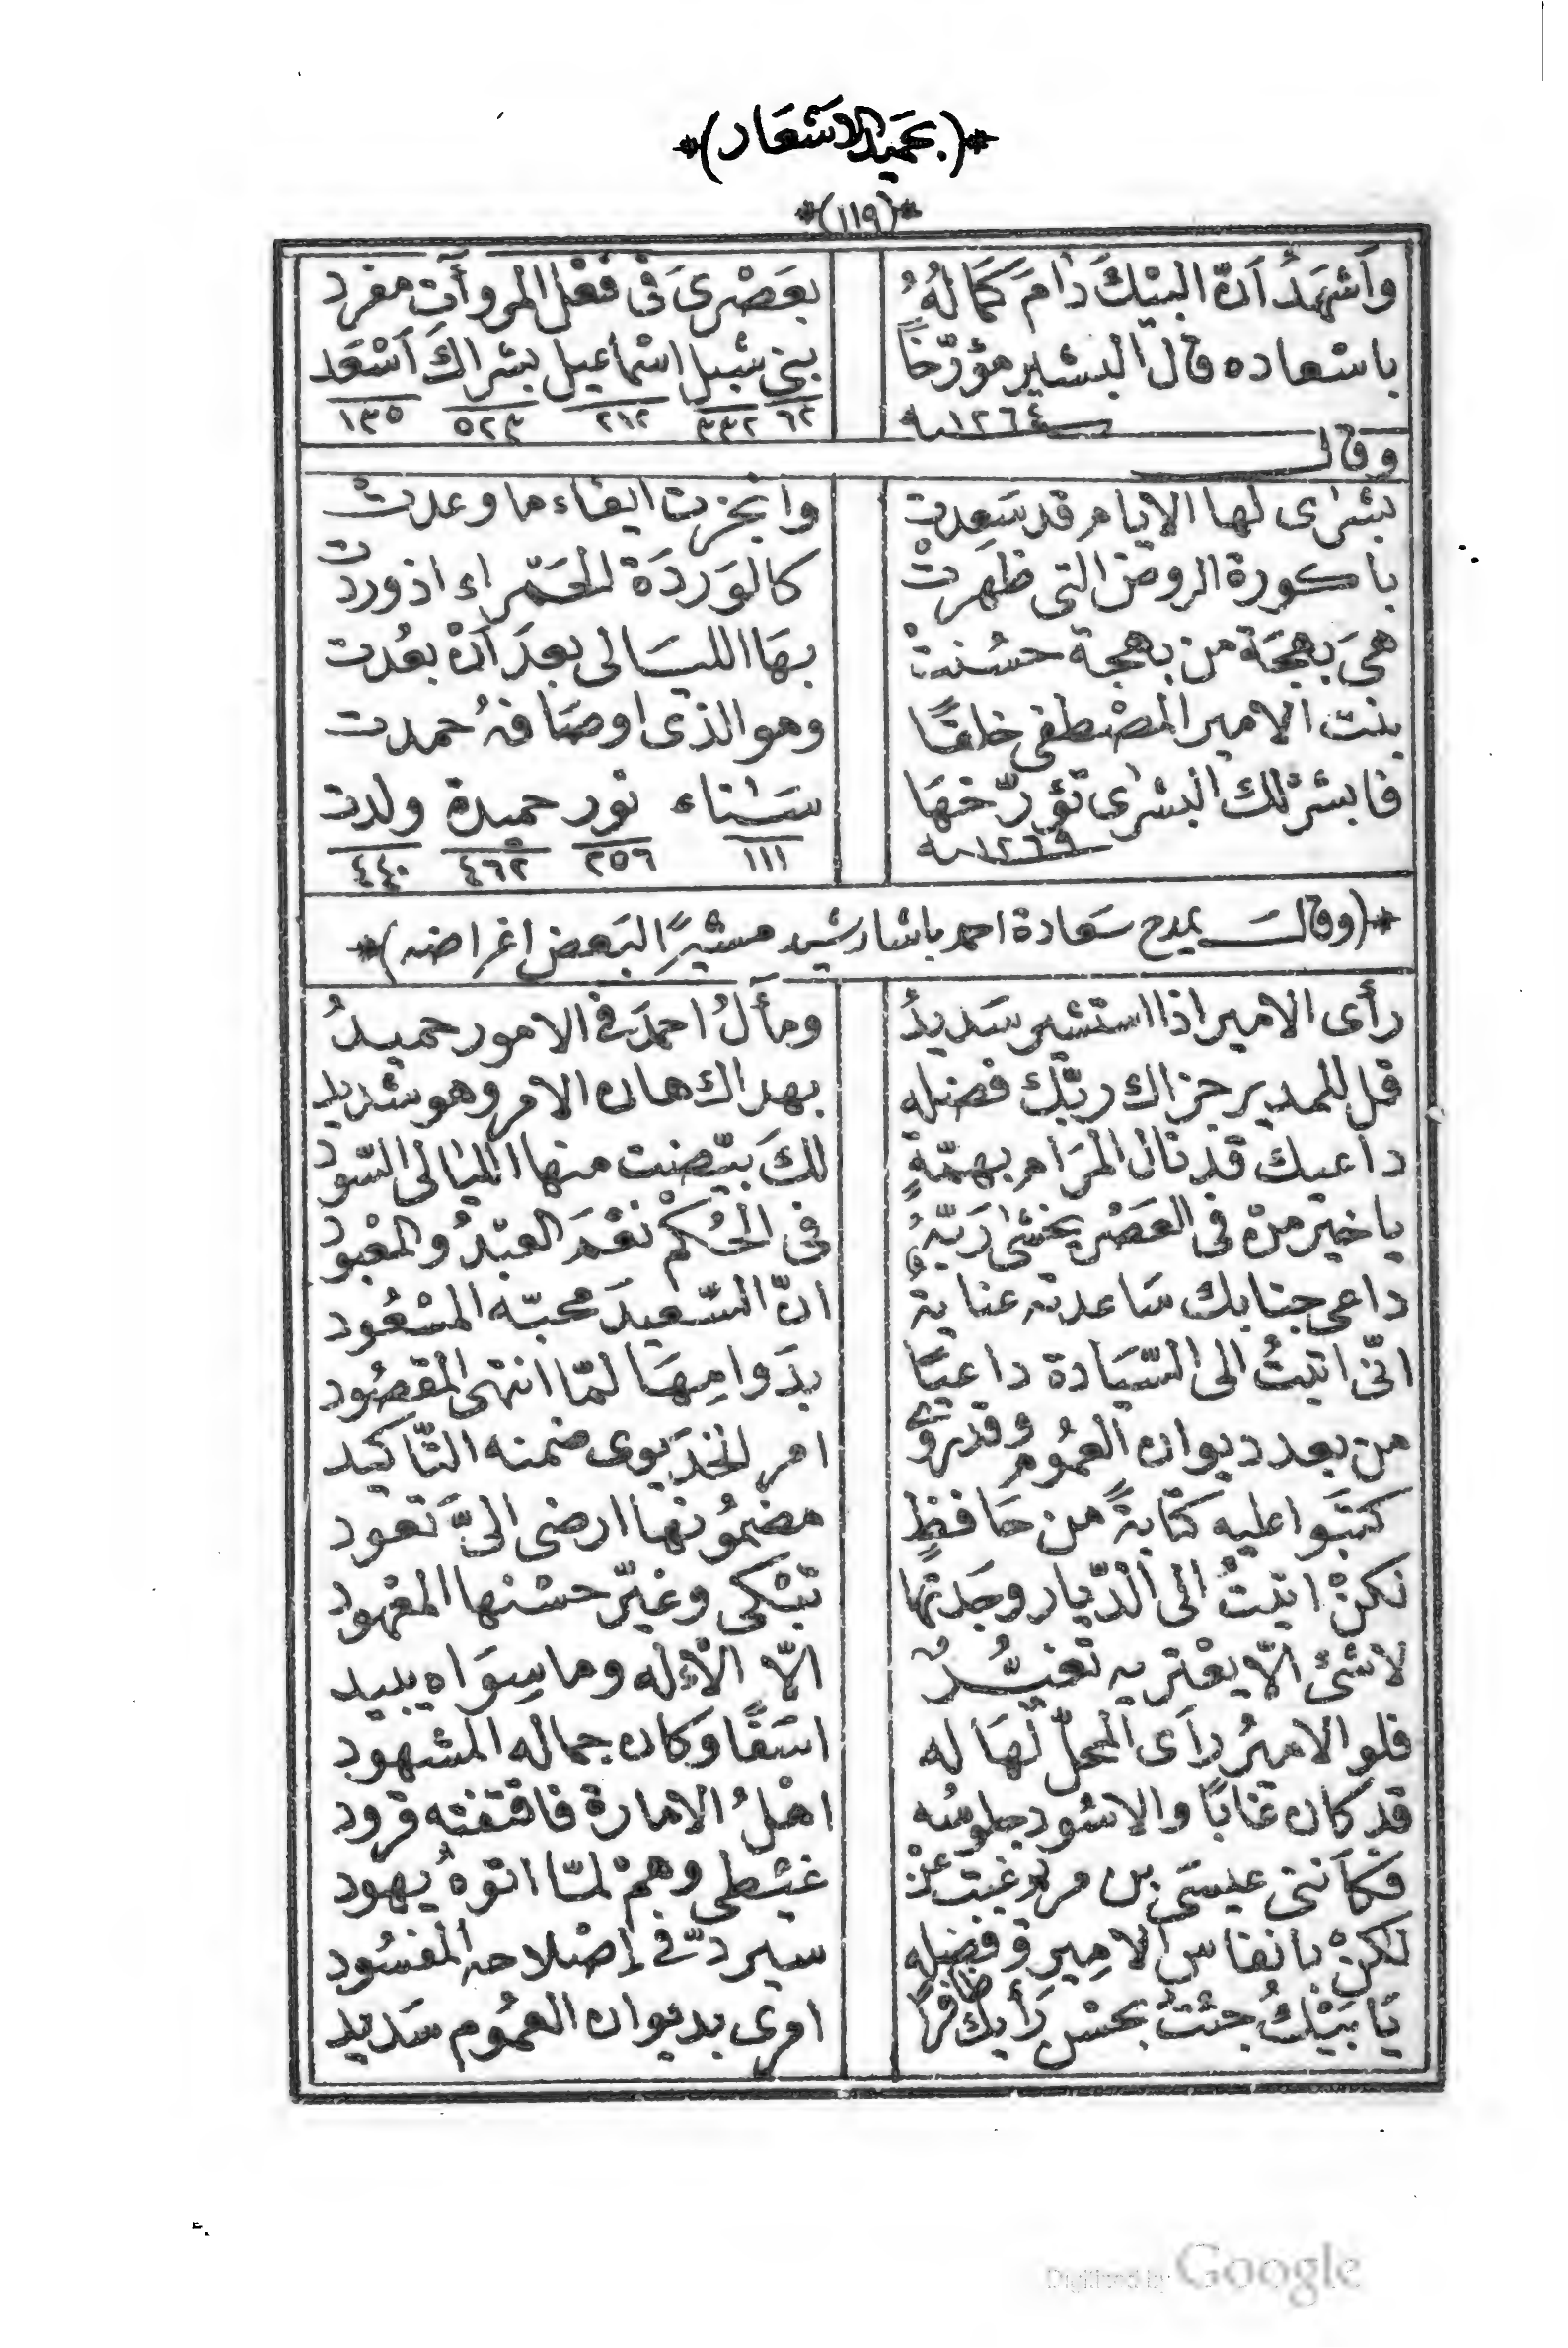 *(بحميد الاشعار)*
*(١١٩)*
وأشهد أنّ البيك دامَ كمالهُ بعَصْرىَ فى فعْل المروآت مفرد
باسعاده قال البشير مؤرّخاً بنى شبل اسماعيل بشراكَ اَسْعَد
١٢٦٤سنه ٦٢ ٣٣٢ ٢١٢ ٥٢٣ ١٣٥
وقال
بشرٰى لها الايام قد سَعِدت وانجزت ايفاء ما وعدتْ
باكورة الروض التى ظهرتْ كالوَردَة الحَمراء اذ وردت
هىَ بهجَة من بهجة حسُنتْ بهَا الليَالى بعدَ اَنْ بعُدت
بنت الامير المصْطفى خلقًا وهو الذى اوصَافهُ حمدت
فابشرْ لك البشرٰى تؤرّخهَا سَناء نور حميدة ولدت
١٢٦٩سنه ١١١ ٢٥٦ ٤٦٢ ٤٤٠
*(وقالَ يمدح سَعادة احمد باشا رشيد مشيرًا لبَعض اغراضه)*
رأى الامير اذا استشير سَديدُ ومأ لُ احمدَ فى الامور حميدُ
قل للمدير جزاك ربّك فضله بهداك هان الامر وهو شديد
داعيك قد نال المرَام بهمّةٍ لكَ بيّضت منها الليالى السّود
يا خيْر منْ فى العَصْر يخشٰى رَبّهُ فى الحُكمْ نعْمَ العبْدُ والمعْبود
داعى جنابك سَاعدته عناية انّ السّعيدَ محبّه المسْعُود
انّى اتيتُ الى السّيَادة داعيًا بدَوامِهَا لمّا انتهى المقصُود
من بعد ديوان العمُوم وقد امر الخديوى ضمنه التّاكيد
كتبَوا عليه كتابةً من حَافظٍ مضمُونها ارضى الىَّ تعود
لكنْ اتيتُ الى الدّيار وجَدتها تبْكى وغيّر حسْنها المعْهود
لا شئ الاّ يعْتريه تغيُّرٌ الاّ الاْله وما سِوَاه يبيد
فلو الاميرُ رأَى المحلّ لهَا له اسَفًا وكان جماله المشهود
قد كان غابًا والاسُود جلوسُه اهْلُ الامارة فاقتفته قرود
فكأنى عيسَى بن مريم غبت عنْ غيْطى وهمْ لمّا اتوْهُ يهود
لكنْ بانفاس الامِير وفضله سَيردّ فى إصْلاحه المفسُود
يَا بَيْكُ جئتُ بحسْن رَأيك ظافرًا امرى بديوان العمُوم سَديد
Digitized by Google